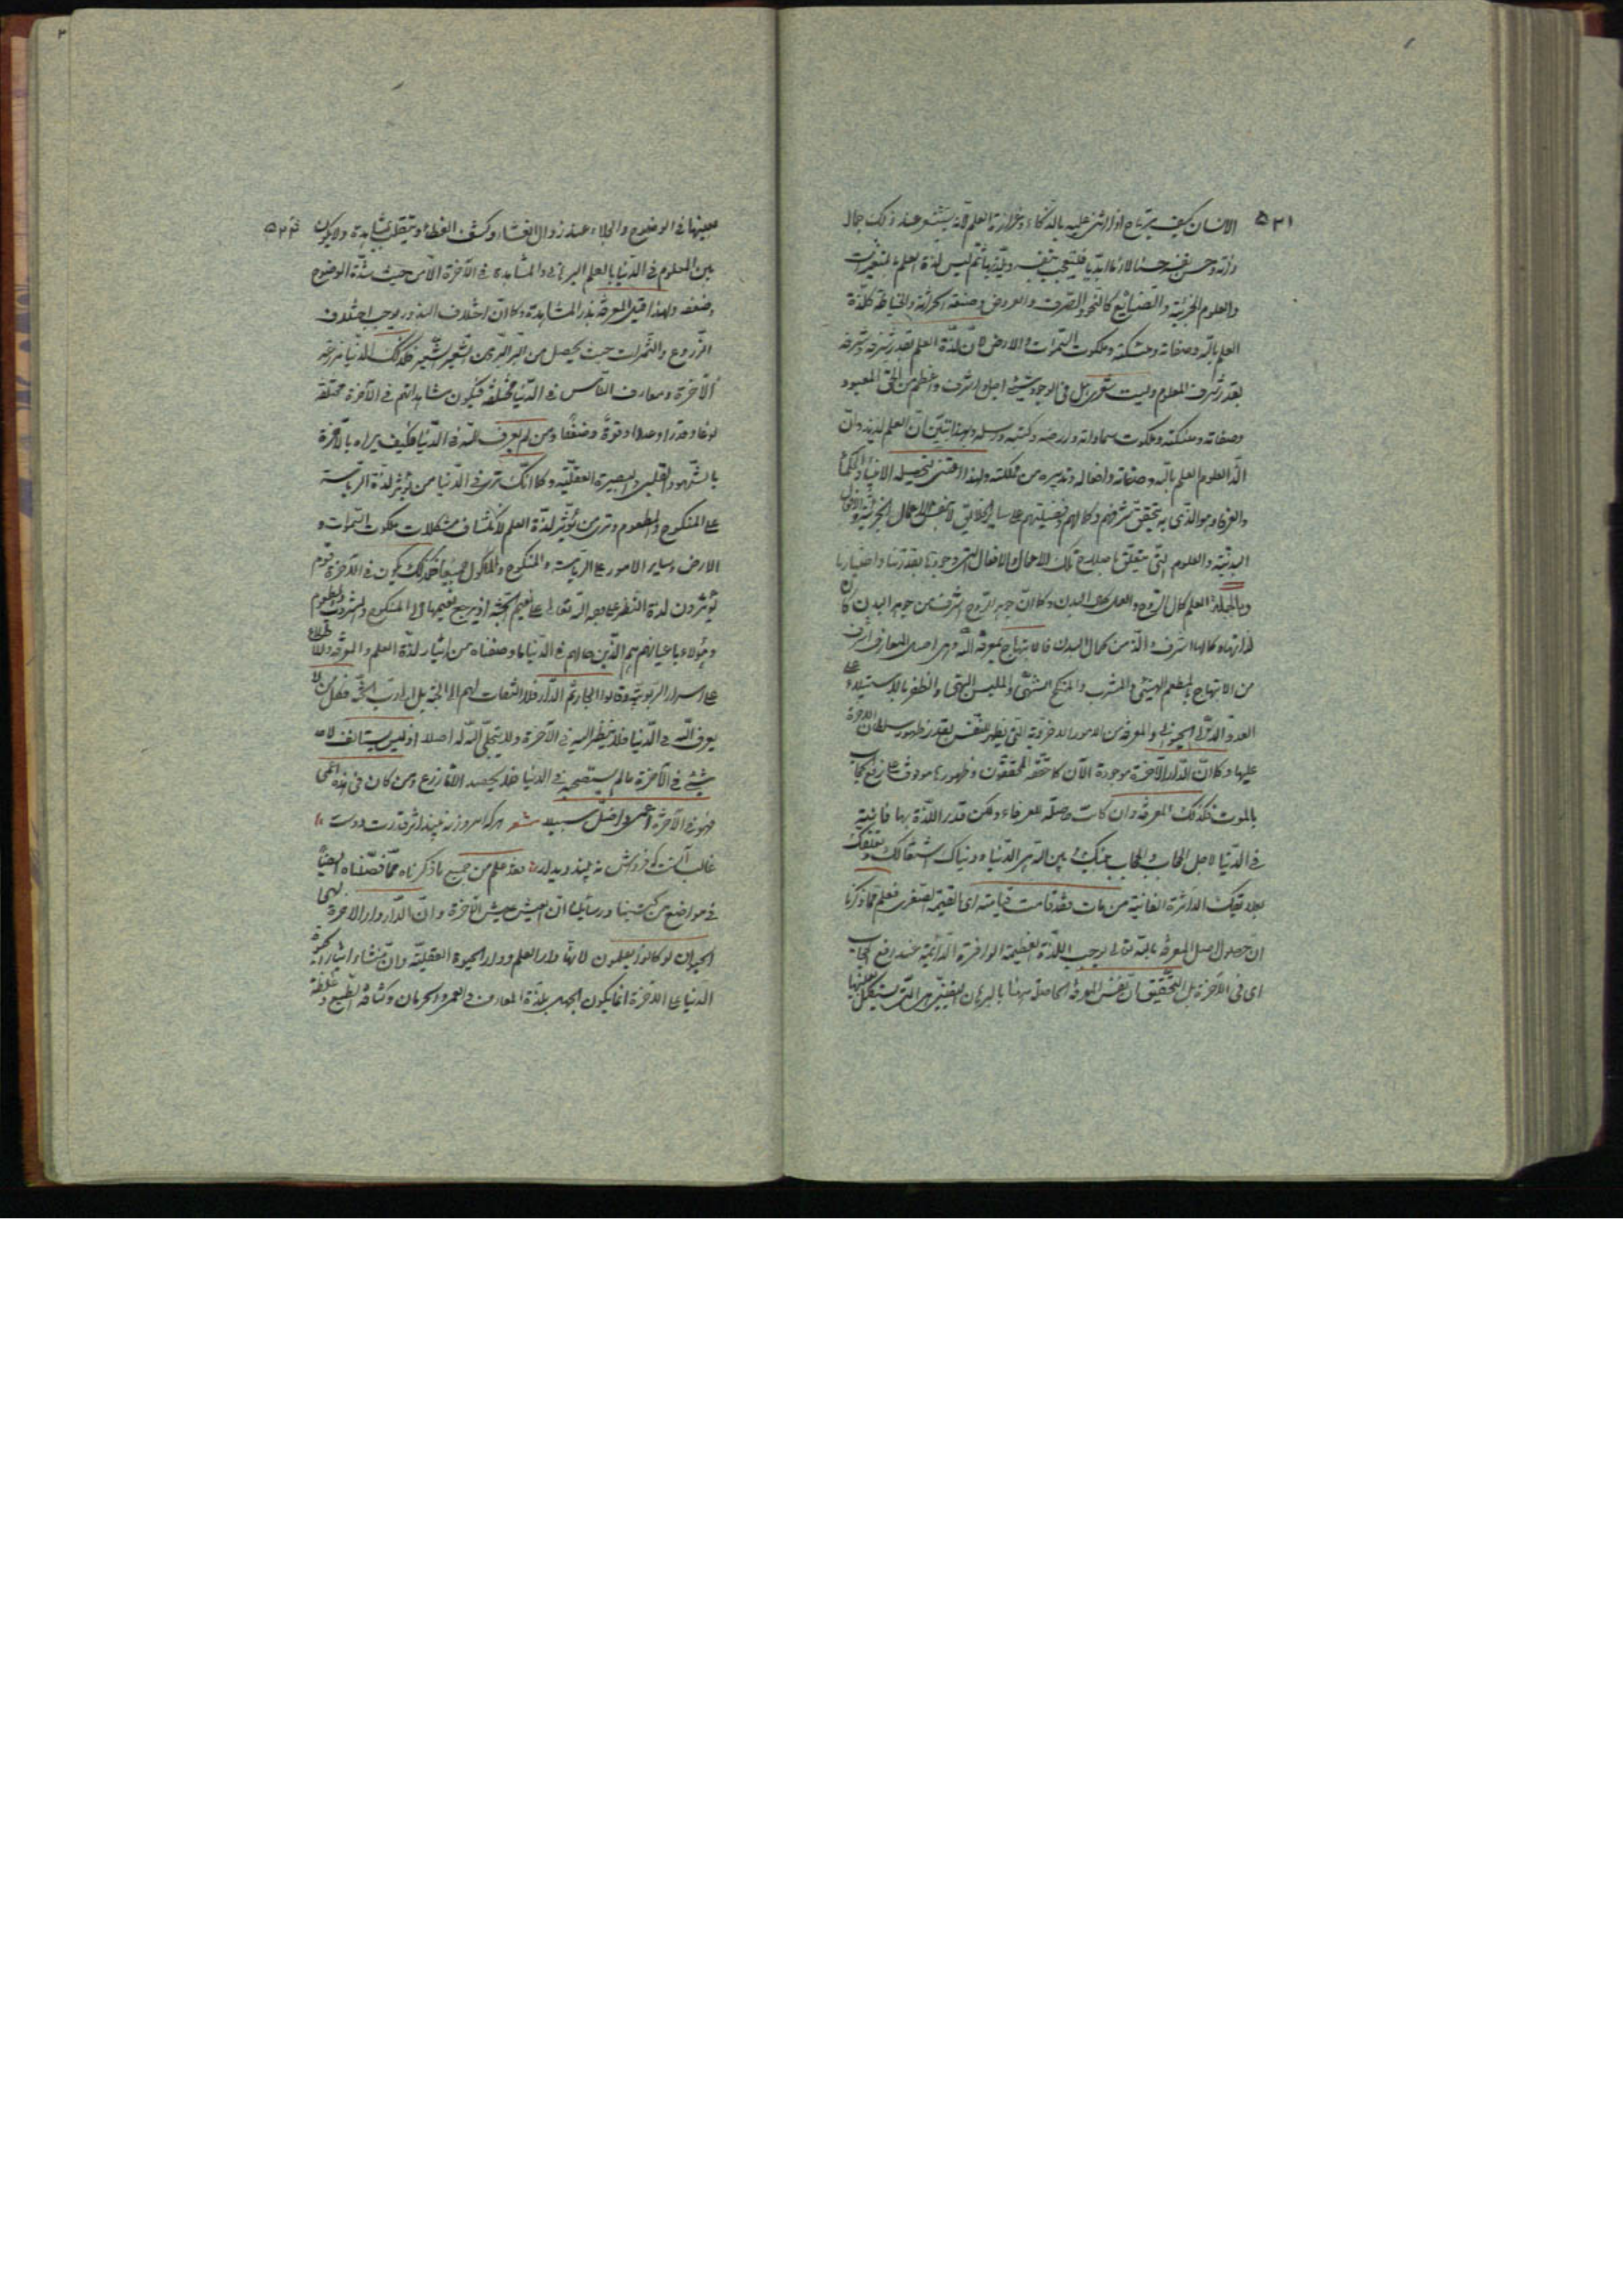 الانسان كيف يرتاح اذا اثنى عليه بالذكاء وغزارة العلم لانه يستشعر عند ذلك جمال ٥٢١
ذاته وحسن نفسه فيتعجب بنفسه ويلتذ بها ثم ليس لذة العلم
والعلوم الجزئية والصنايع كالنحو والصرف والعروض وصنعة الحراثة والخياطة كلذة
العلم بالله وصفاته وملئكته وملكوت السموات والارض لان لذة العلم بقدر شرفه وشرفه
بقدر شرف المعلوم وليت شعرى هل فى الوجود شىء اجل واشرف واعظم من الحق المعبود
وصفاته وملئكته وملكوت سماواته وارضه وكتبه ورسله وبهذا تبين ان العلم لذيذ وان
الذ العلوم العلم بالله وصفاته وافعاله وتدبيره من مملكته ولهذا اعتنى بتحصيله الانبياء والحكماء
والعرفاء وهو الذى به يتحقق شرفهم وكمالهم وفضيلتهم على ساير الخلايق لا بنفس الاعمال الجزئية والافعال
البدنية والعلوم التى يتعلق باصلاح تلك الاعمال والافعال التى وجودها بقدرتنا واختيارنا
وبالجملة العلم كمال الروح والعمل كمال البدن وكما ان جوهر الروح اشرف من جوهر البدن كان
كمالها اشرف والذ من كمال البدن فالابتهاج بمعرفة الله وهى اصل المعارف اشرف
من الابتهاج بالمطعم الهنئ والمشرب والمنكح الشهى والملبس البهى والظفر بالاستيلاء على
العدو والمعرفة من الامور الاخروية التى يظهر للنفس بقدر ظهور سلطان الاخرة
عليها وكما ان الدار الآخرة موجودة الآن كما حققه المحققون وظهورها موقوف على رفع الحجاب
بالموت فكذلك المعرفة وان كانت حاصلة للعرفاء ولكن قدر اللذة بها فائتة
فى الدنيا لاجل الحجاب والحجاب بينك وبين الله هى الدنيا ودنياك اشتغالك وتعلقك
الداثرة الفانية من مات فقد قامت قيامته اى القيمة الصغرى فعلم مما ذكرنا
ان حصول اصل المعرفة بالله تعالى يوجب اللذة العظيمة الوافرة الدائمية عند رفع الحجاب
اى فى الآخرة بل التحقيق ان نفس المعرفة الحاصلة ههنا بالبرهان اليقينى هى التى يستكمل بعينها
بعينها فى الوضوح والجلاء عند زوال الغشاء وكشف الغطاء وينقلب مشاهدة ولا يكون ٥٢٢
بين المعلوم فى الدنيا بالعلم البرهانى والمشاهدة فى الآخرة الا من حيث شدة الوضوح
وضعفه ولهذا قيل المعرفة بذر المشاهدة وكما ان اختلاف البذور يوجب اختلاف
الزروع والثمرات حيث يحصل من البر البر ومن الشعير الشعير فكذلك الدنيا مزرعة
الآخرة ومعارف الناس فى الدنيا مختلفة فيكون مشاهداتهم فى الآخرة مختلفة
نوعا وقدرا وعددا وقوة وضعفا ومن لم يعرف الله فى الدنيا فكيف يراه بالآخرة
بالشهود القلبى والبصيرة العقلية وكما انك ترى فى الدنيا من يؤثر لذة الرياسة
على المنكوح والمطعوم وترى من يؤثر لذة العلم لانكشاف مشكلات ملكوت السموات و
الارض وساير الامور على الرياسة والمنكوح والمأكول جميعا فكذلك يكون فى الآخرة قوم
يؤثرون لذة النظر على وجه الله تعالى على نعيم الجنة اذ يرجع نعيمها الى المنكوح والمشروب والمطعوم
وهؤلاء باعيانهم هم الذين حالهم فى الدنيا ما وصفناه من ايثار لذة العلم والمعرفة والاطلاع
على اسرار الربوبية وقالوا الجار ثم الدار فلا التفات لهم الى الجنة بل الى رب الجنة فكل من لا
يعرف الله فى الدنيا فلا ينظر اليه فى الآخرة ولا يتجلى الله له اصلا اذ ليس يستانف لاحد
شىء فى الآخرة ما لم يستصحبه فى الدنيا فلا يحصد الا ما زرع ومن كان فى هذه اعمى
فهو فى الآخرة اعمى واضل سبيلا شعر هركه امروز نبيند اثر قدرت دوست
غالب آنست كه فرداش نه بيند ديدار فقد علم من جميع ما ذكرناه مما فصلناه ايضا
فى مواضع من كتبنا ورسائلنا ان العيش عيش الآخرة وان الدار دار الاخرة لهى
الحيوان لو كانوا يعلمون لانها دار العلم ودار الحيوة العقلية وان منشأ ايثار الحيوة
الدنيا على الآخرة انما يكون الجهل بلذة المعارف فى العمر والحرمان وكثافة الطبع وغلظة